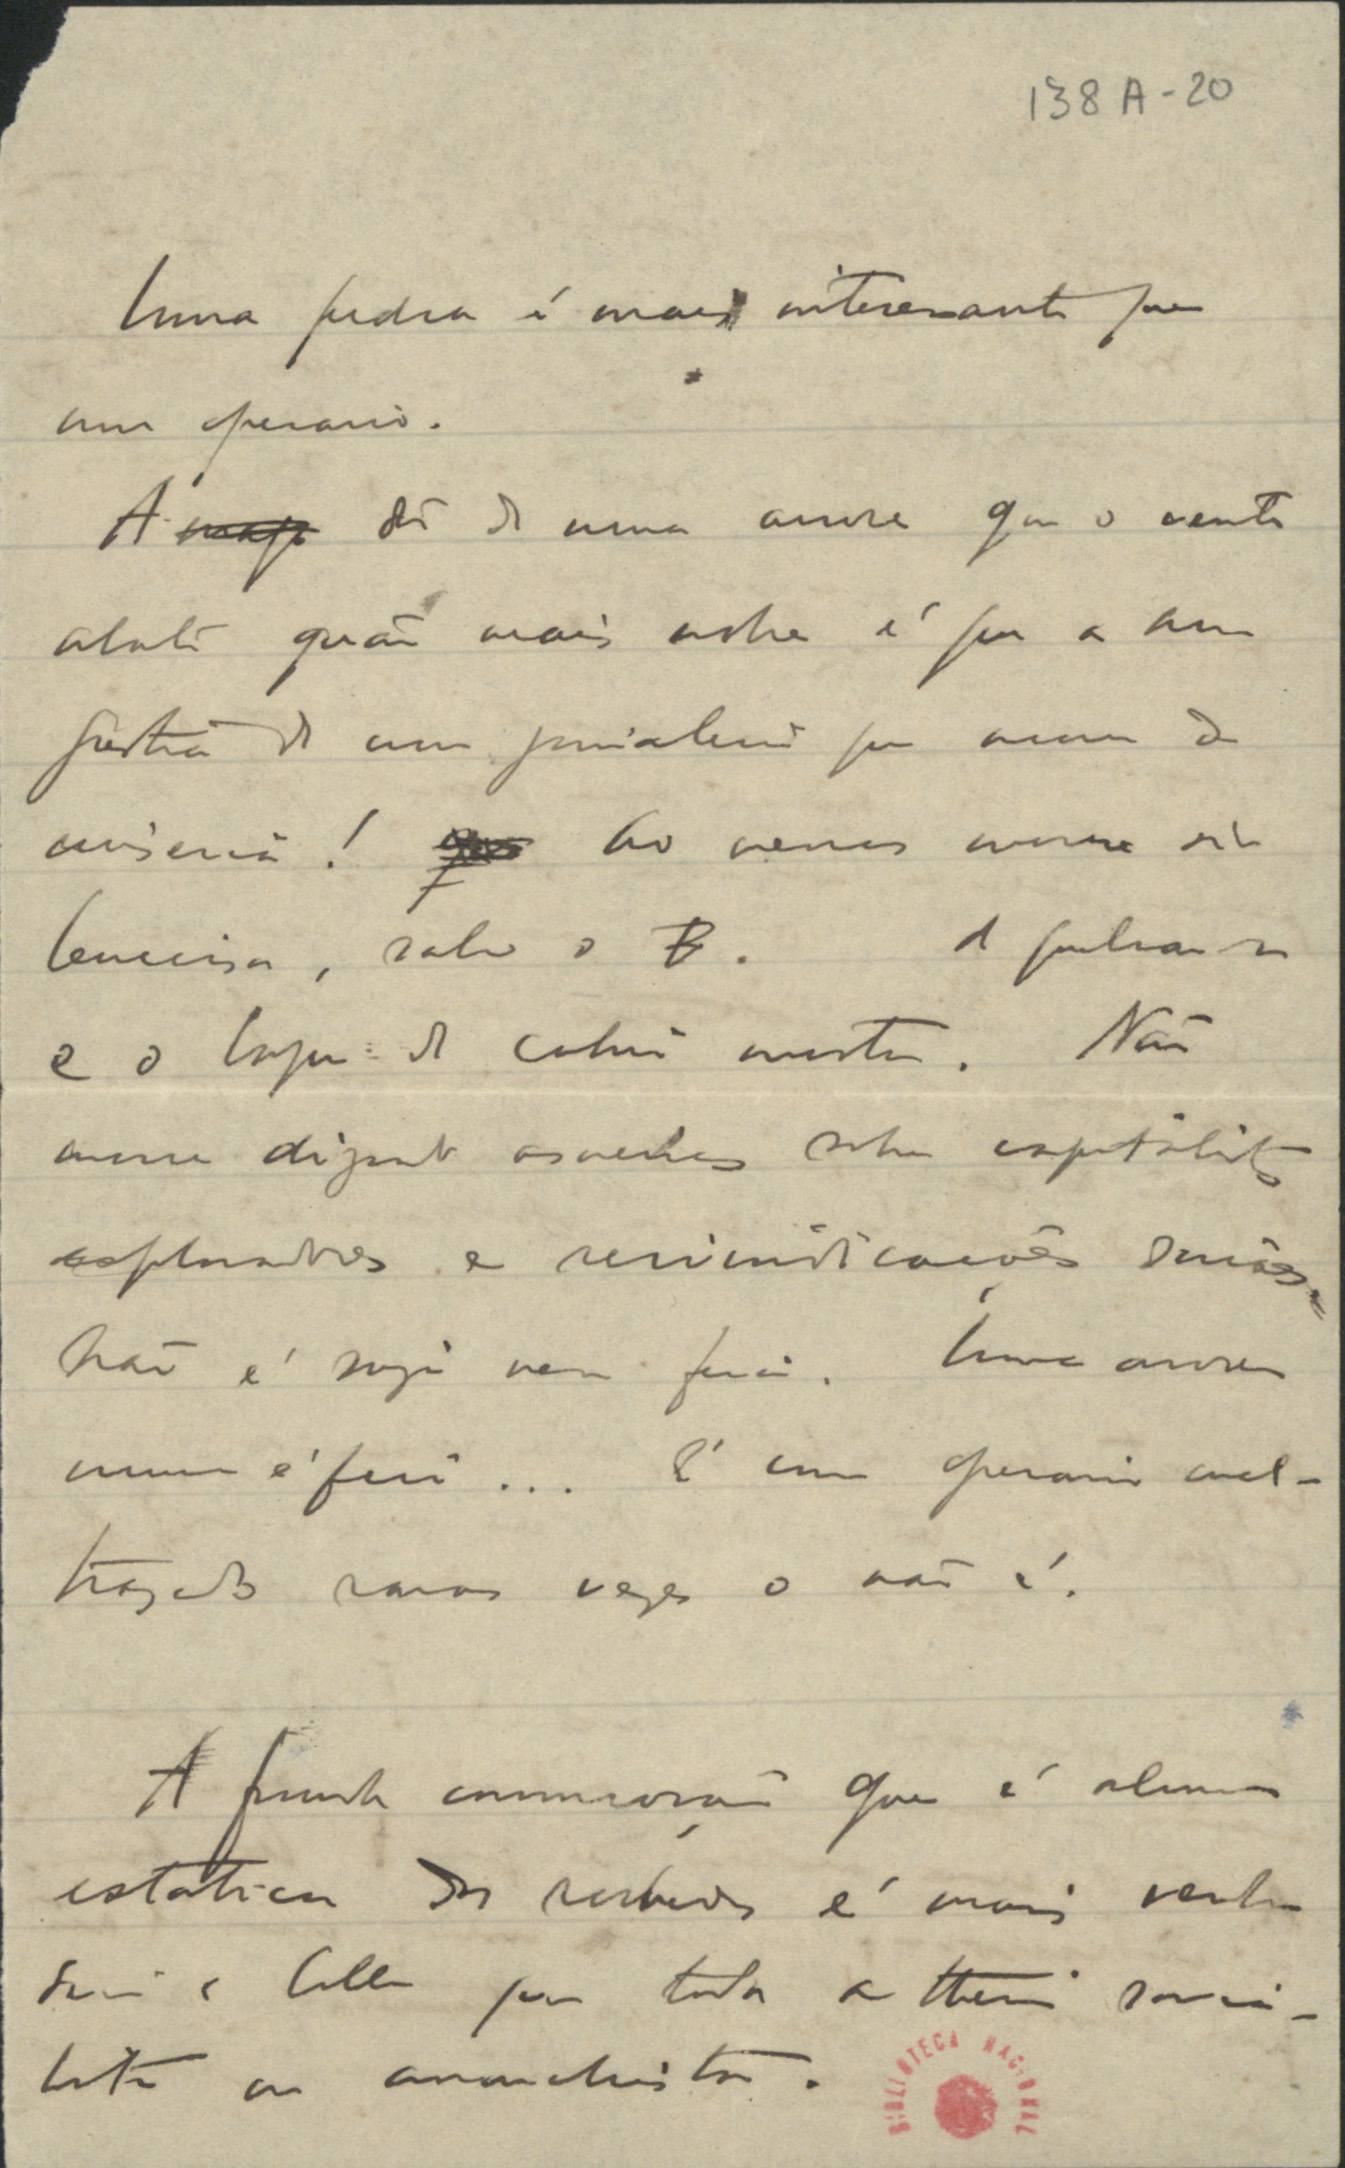 138A-20
Uma pedra é mais interessante que
um operario.
A dôr de uma arvore que o vento
abate quão mais nobre é que a
de um que morre de
miseria! Ao menos morre
, salvo o B.
e o de cahir morta. Não
morre dizendo asneiras sobre capitalistas
exploradores e reivindicações sociaes.
Não é suja nem feia. Uma arvore
nunca é feia... E um operario mal-
trazado raras vezes o não é.
A funda commoção que é alma
estatica dos rochedos é mais verda
deira e bella que toda a theoria socia-
lista ou anarchista.
BIBLIOTECA NACIONAL